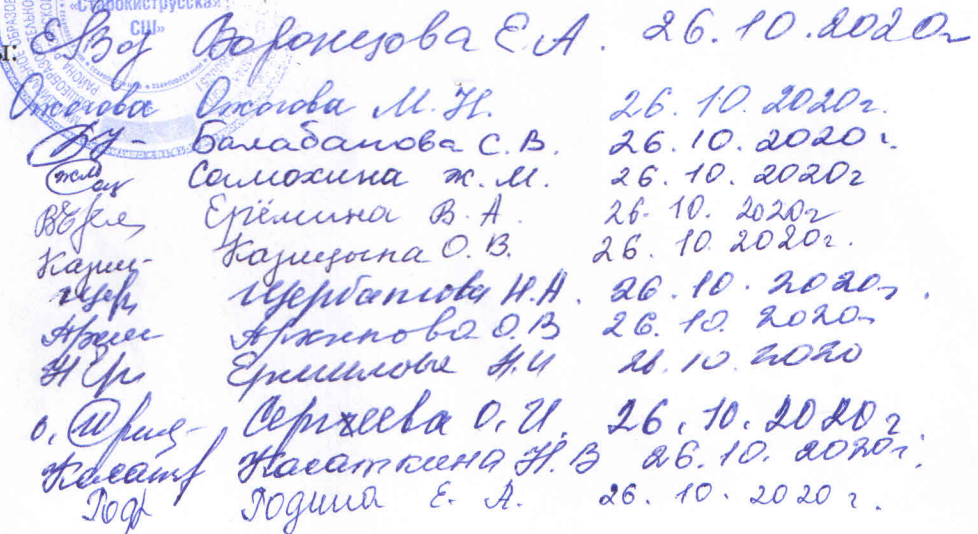 «Старокиструсская
СШ»
Воронцова Е.А. 26.10.2020г
Ожогова Ожогова М.Н. 26.10.2020г.
Балабанова С.В. 26.10.2020г.
Самохина Ж.М. 26.10.2020г
Ерёмина В.А. 26.10.2020г
Казицына О.В. 26.10.2020г.
Щербатова Н.А. 26.10.2020г.
Архипова О.В 26.10.2020г
Ермилова Н.И 26.10.2020
Сергеева О.И. 26.10.2020г.
Касаткина Н.В 26.10.2020г.
Родина Е.А. 26.10.2020г.